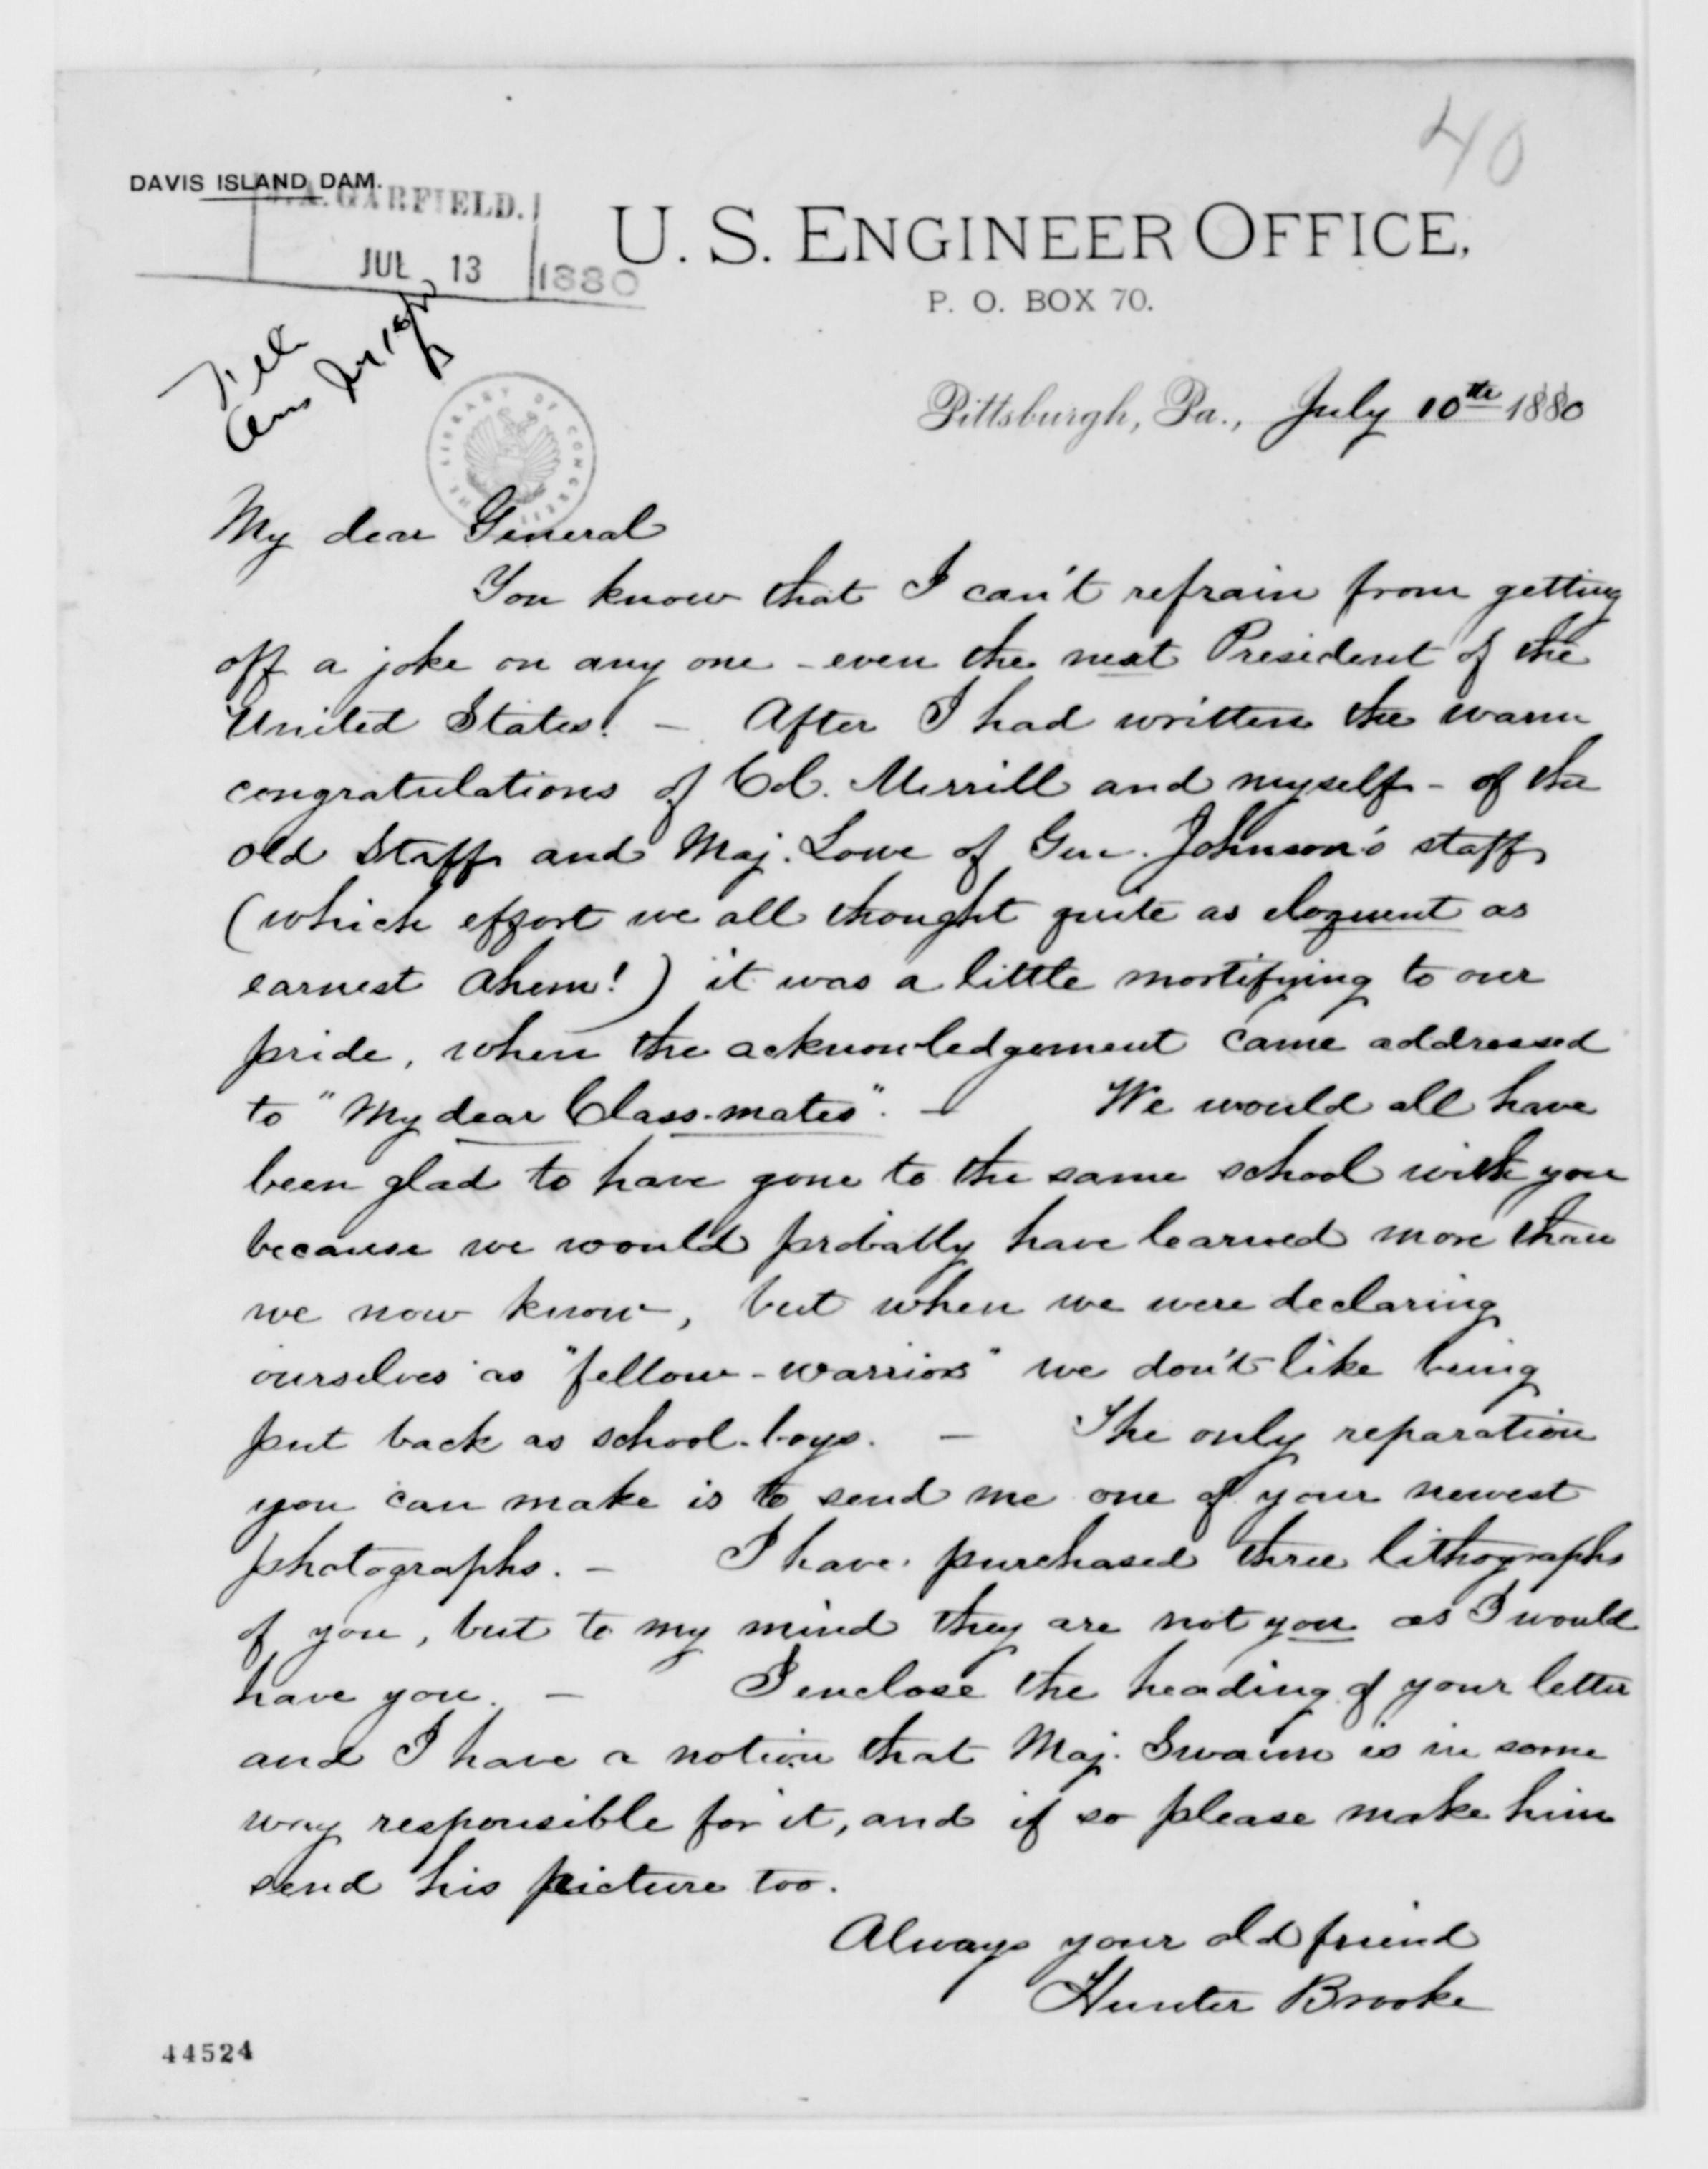 40
DAVIS ISLAND DAM.
J. A. GARFIELD.
JUL 13 1880
U. S. ENGINEER OFFICE,
P. O. BOX 70.
File
Ans
THE LIBRARY OF CONGRESS
Pittsburgh, Pa., July 10th 1880
My dear General
You know that I can't refrain from getting
off a joke on any one - even the next President of the
United States! - After I had written the warm
congratulations of Col. Merrill and myself - of the
old Staff and Maj. Lowe of Gen. Johnson's staff
(which effort we all thought quite as eloquent as
earnest ahem!) it was a little mortifying to our
pride, when the acknowledgement came addressed
to "My dear Class-mates". - We would all have
been glad to have gone to the same school with you
because we would probably have learned more than
we now know, but when we were declaring
ourselves as "fellow-warriors" we don't like being
put back as school-boys. - The only reparation
you can make is to send me one of your newest
photographs. - I have purchased three lithographs
of you, but to my mind they are not you as I would
have you. - I enclose the heading of your letter
and I have a notion that Maj. Swaim is in some
way responsible for it, and if so please make him
send his picture too.
Always your old friend
Hunter Brooke
44524